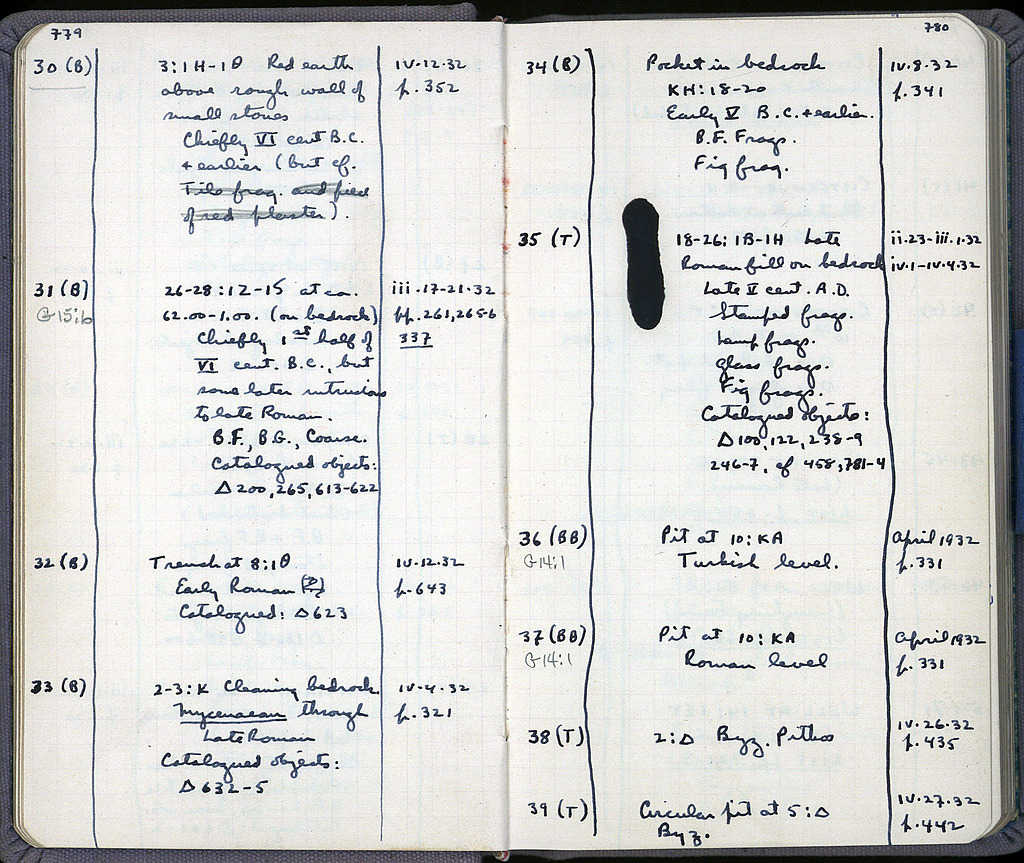 779
30 (B) 3:1H-1Θ Red earth IV.12.32
above rough wall of p. 352
small stones
Chiefly VI cent B.C.
+ earlier (but cf.
Tile frag. and piece
of red plaster).
31 (B) 26-28:12-15 at ca. iii.17-21.32
G 15:6 62.00-1.00. (on bedrock) pp. 261, 265-6
Chiefly 1st half of 337
VI cent. B.C., but
some later intrusions
to late Roman.
B.F., B.G., Coarse.
Catalogued objects:
Δ 200, 265, 613-622
32 (B) Trench at 8:1Θ IV.12.32
Early Roman (?) p. 643
Catalogued: Δ 623
33 (B) 2-3:K Cleaning bedrock IV.4.32
Mycenaean through p. 321
Late Roman
Catalogued objects:
Δ 632-5
780
34 (B) Pocket in bedrock IV.8.32
KH:18-20 p. 341
Early V B.C. + earlier.
B.F. Frags.
Fig frag.
35 (T) 18-26:1B-1H Late ii.23-iii.1.32
Roman fill on bedrock iv.1-iv.4.32
Late II cent. A.D.
Stamped frags.
Lamp frags.
Glass frags.
Fig frags.
Catalogued objects:
Δ 100, 122, 238-9
246-7, cf 458, 781-4
36 (BB) Pit at 10:KA April 1932
G 14:1 Turkish level. p. 331
37 (BB) Pit at 10:KA April 1932
G 14:1 Roman level p. 331
38 (T) 2:Δ Byz. Pithos IV.26.32
p. 435
39 (T) Circular pit at 5:Δ IV.27.32
Byz. p. 442